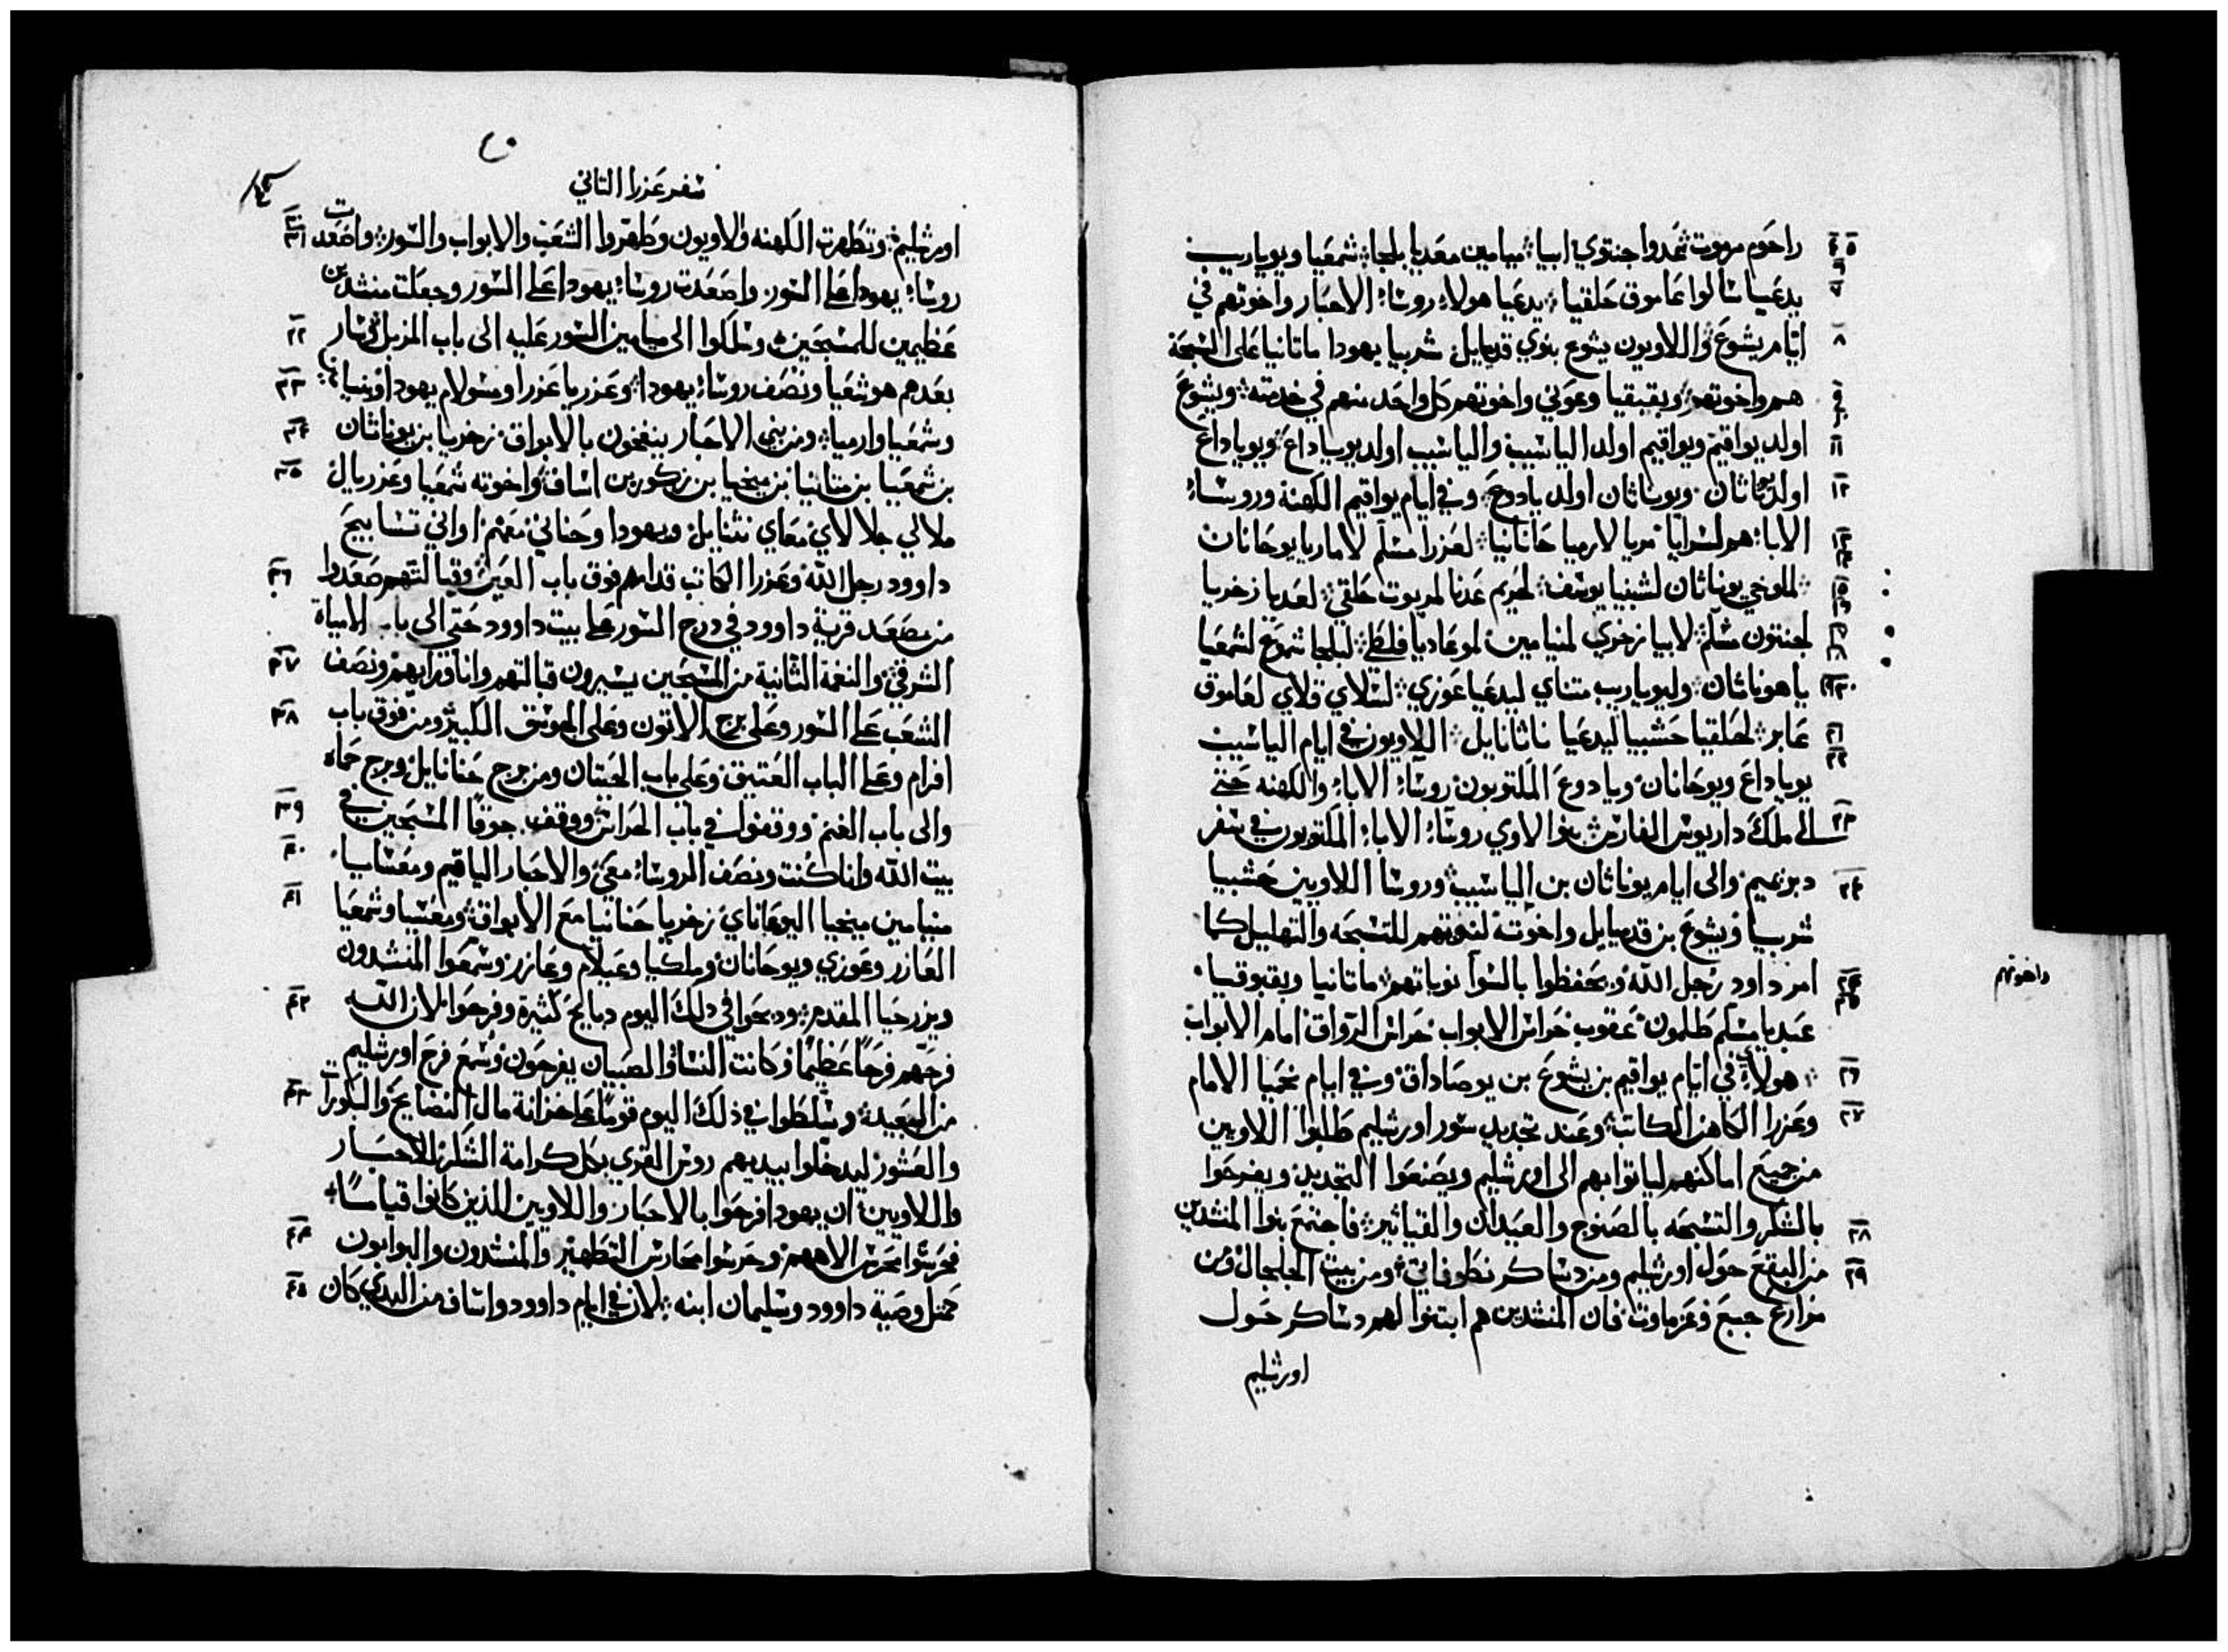 راحوم مريوت عدوا جنتوي ابيا ميامين معديا بلجا شمعيا ويوياريب
يدعيا سالوا عاموق حلقيا يدعيا هولاء روساء الاحبار واخوتهم في
ايام يشوع واللاويون يشوع بنوي قدميايل شربيا يهودا ماتانيا على التسبحة
هم واخوتهم وبقبقيا وعوني واخوتهم كل واحد منهم في خدمته ويشوع
اولد يواقيم ويواقيم اولد الياشيب والياشيب اولد يوياداع ويوياداع
اولد يوناثان ويوناثان اولد يادوع وفي ايام يواقيم الكهنة وروساء
الاباء هم لسرايا مريا لارميا حانانيا لعزرا مسلم لاماريا يوحانان
لملوخي يوناثان لشبنيا يوسف لحريم عدنا لمريوت حلقي لعديا زخريا
لجنتون مسلم لابيا زخري لمنيامين لموعاديا فلطي لبلجا شموع لشمعيا
ياهوناثان وليوياريب متناي ليدعيا عوزي لسلاي قلاي لعاموق
عابر لحلقيا حشبيا ليدعيا ناثانايل اللاويون في ايام الياشيب
يوياداع ويوحانان ويادوع المكتوبون روساء الاباء والكهنه حتى
الى ملك داريوس الفارسي بنوا لاوي روساء الاباء المكتوبون في سفر
دبريميم والى ايام يوناثان بن الياشيب وروسا اللاويين حشبيا
شربيا ويشوع بن قدميايل واخوتة لنوبتهم للتسبحه والتهليل كما
امر داود رجل الله ويحفظوا بالسوآ نوباتهم ماتانيا وبقبوقيا
واخوتهم
عبديا مسلم طلمون عقوب حراس الابواب حراس الرواق امام الابواب
هولاء في ايام يواقيم بن يشوع بن يوصاداق وفي ايام نحميا الامام
وعزرا الكاهن الكاتب وعند تجديد سور اورشليم طلبوا اللاويين
من جميع اماكنهم لياتوا بهم الى اورشليم ويصنعوا التجديد ويفرحوا
بالشكر والتسبحه بالصنوج والعيدان والقياثير فاجتمع بنوا المنشدين
من البقع حول اورشليم ومن دساكر نطوفاتي ومن بيت الجلجال ومن
مزارع جبع وعزماوت فان المنشدين هم ابتنوا لهم دساكر حول
اورشليم
٢٠
سفر عزرا الثاني
اورشليم وتطهرت الكهنه واللاويون وطهروا الشعب والابواب والسور واصعدت
روساء يهودا على السور واصعدت روساء يهودا على السور وجعلت منشدين
عظيمين للمسبحين وسلكوا الى ميامين السور عليه الى باب المزبل وسار
بعدهم هوشعيا ونصف روساء يهودا وعزريا عزرا ومسولام يهودا وبنيامين
وشمعيا وارميا ومن بني الاحبار ينفخون بالابواق زخريا بن يوناثان
بن شمعيا بن متانيا بن ميخيا بن زكور بن اساف واخوته شمعيا وعزريال
ملالي جلالاي معاي نثنايل ويهودا وحناني معهم اواني تسابيح
داوود رجل الله وعزرا الكاتب قدامهم فوق باب العين وقبالتهم صعدوا
من مصعد قرية داوود في درج السور على بيت داوود حتى الى باب الامياة
الشرقي والنغمة الثانية من المسبحين يسيرون قبالتهم وانا وراهم ونصف
الشعب على السور وعلى برج الاتون وعلى الموسق الكبير ومن فوق باب
افرام وعلى الباب العتيق وعلى باب الحيتان ومن برج حنانايل وبرج حماه
والى باب الغنم ووقفوا في باب الحراس ووقف جوقا المسبحين في
بيت الله وانا كنت ونصف الروساء معي والاحبار الياقيم ومعسايا
منيامين ميخيا اليوعاناي زخريا حنانيا مع الابواق ومعسيا وشمعيا
العازر وعوزي ويوحانان وملكيا وعيلام وعازر وسمعوا المنشدون
ويزرحيا المقدم وذبحوا في ذلك اليوم ذبايح كثيرة وفرحوا لان الله
فرحهم فرحا عظيما وكانت النسا والصبيان يفرحون وسمع فرح اورشليم
من البعيد وسلطوا في ذلك اليوم قوما على خزانة مال النضايح والبكورات
والعشور ليدخلوا بيديهم روس القرى بكل كرامة الشكر للاحبار
واللاويين ان يهودا فرحوا بالاحبار واللاويين الذين كانوا قياما
فحرسوا محرس الاههم وحرسوا محارس التطهير والمنشدون والبوابون
كمثل وصية داوود وسليمان ابنه لان في ايام داوود واساف من البدي كان